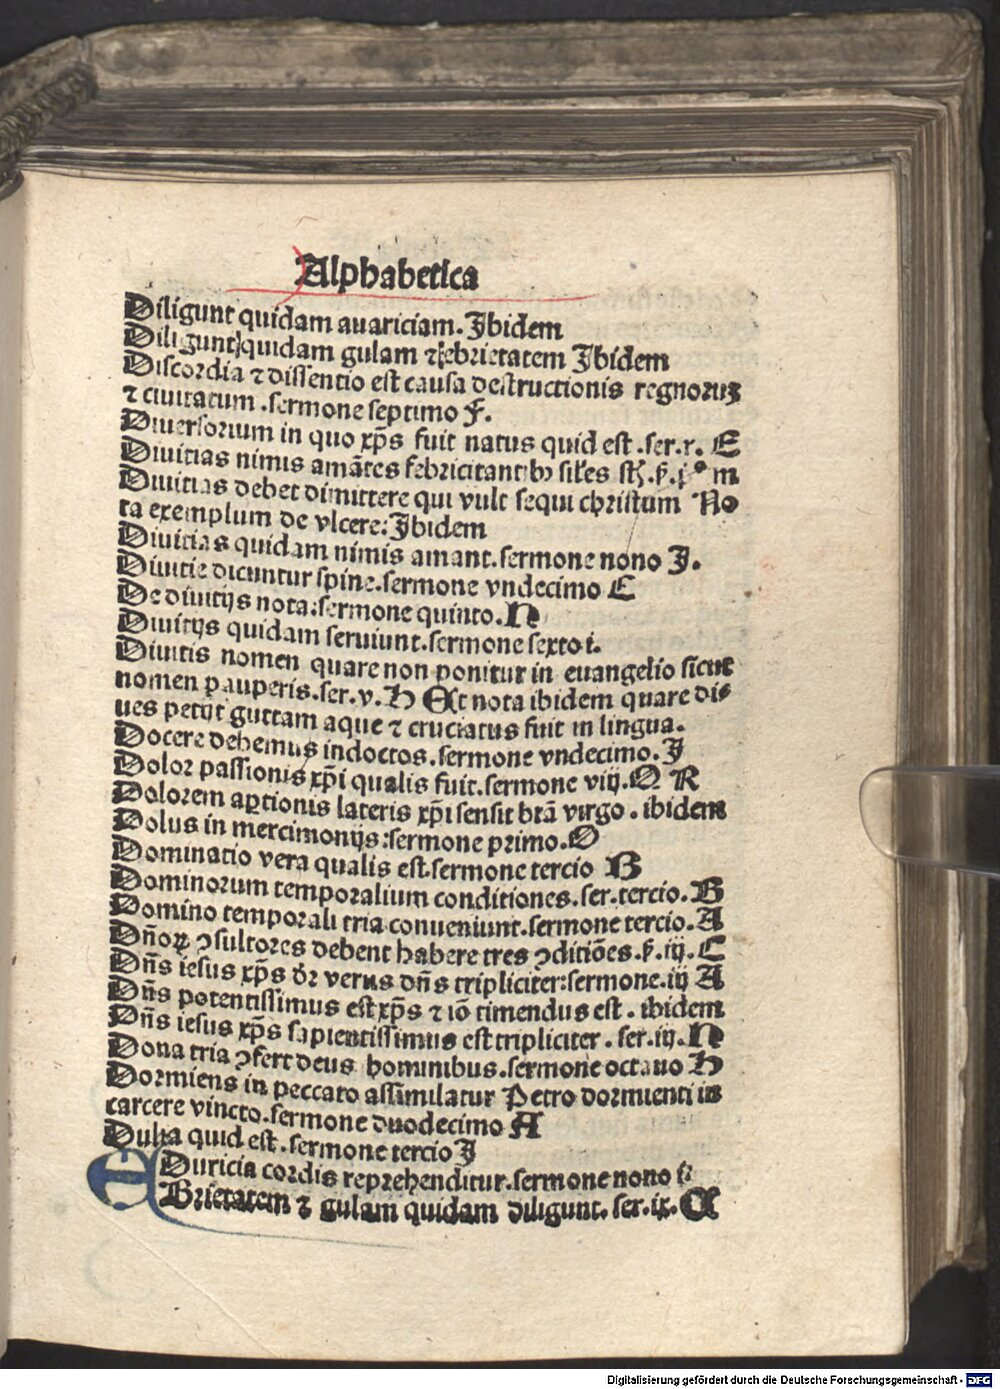 Alphabetica
Diligunt quidam auariciam. Ibidem
Diligunt quidam gulam ⁊ ebrietatem Ibidem
Discordia ⁊ dissentio est causa destructionis regnoruꝫ
⁊ ciuitatum .sermone septimo F.
Diuersorium in quo xp̄s fuit natus quid est .ser.x. E
Diuitias nimis amātes febricitantibꝰ
Diuitias debet dimittere qui vult sequi christum No
ta exemplum de vlcere: Ibidem
Diuitias quidam nimis amant. sermone nono I.
Diuitie dicuntur spine. sermone vndecimo E
De diuitijs nota: sermone quinto. N
Diuitijs quidam seruiunt. sermone sexto i.
Diuitis nomen quare non ponitur in euangelio sicut
nomen pauperis. ser. v. H Et nota ibidem quare di⸗
ues petijt guttam aque ⁊ cruciatus fuit in lingua.
Docere debemus indoctos. sermone vndecimo. I
Dolor passionis xp̄i qualis fuit. sermone viij. Q R
Dolorem aꝑtionis lateris xp̄i sensit btā virgo. ibidem
Dolus in mercimonijs: sermone primo. O
Dominatio vera qualis est. sermone tercio B
Dominorum temporalium conditiones. ser. tercio. B
Domino temporali tria conueniunt. sermone tercio. A
Dn̄oꝝ ꝯsultores debent habere tres ꝯditiōes. ẜ. iij. C
Dn̄s iesus xp̄s dr̄ verus dn̄s tripliciter: sermone. iij A
Dn̄s potentissimus est xp̄s ⁊ iō timendus est. ibidem
Dn̄s iesus xp̄s sapientissimus est tripliciter. ser. iij. N
Dona tria ꝯfert deus hominibus. sermone octauo H
Dormiens in peccato assimilatur Petro dormienti in
carcere vincto. sermone duodecimo A
Dulia quid est. sermone tercio I
Duricia cordis reprehenditur. sermone nono
EBrietatem ⁊ gulam quidam diligunt. ser. ix. Q
Digitalisierung gefördert durch die Deutsche Forschungsgemeinschaft - DFG